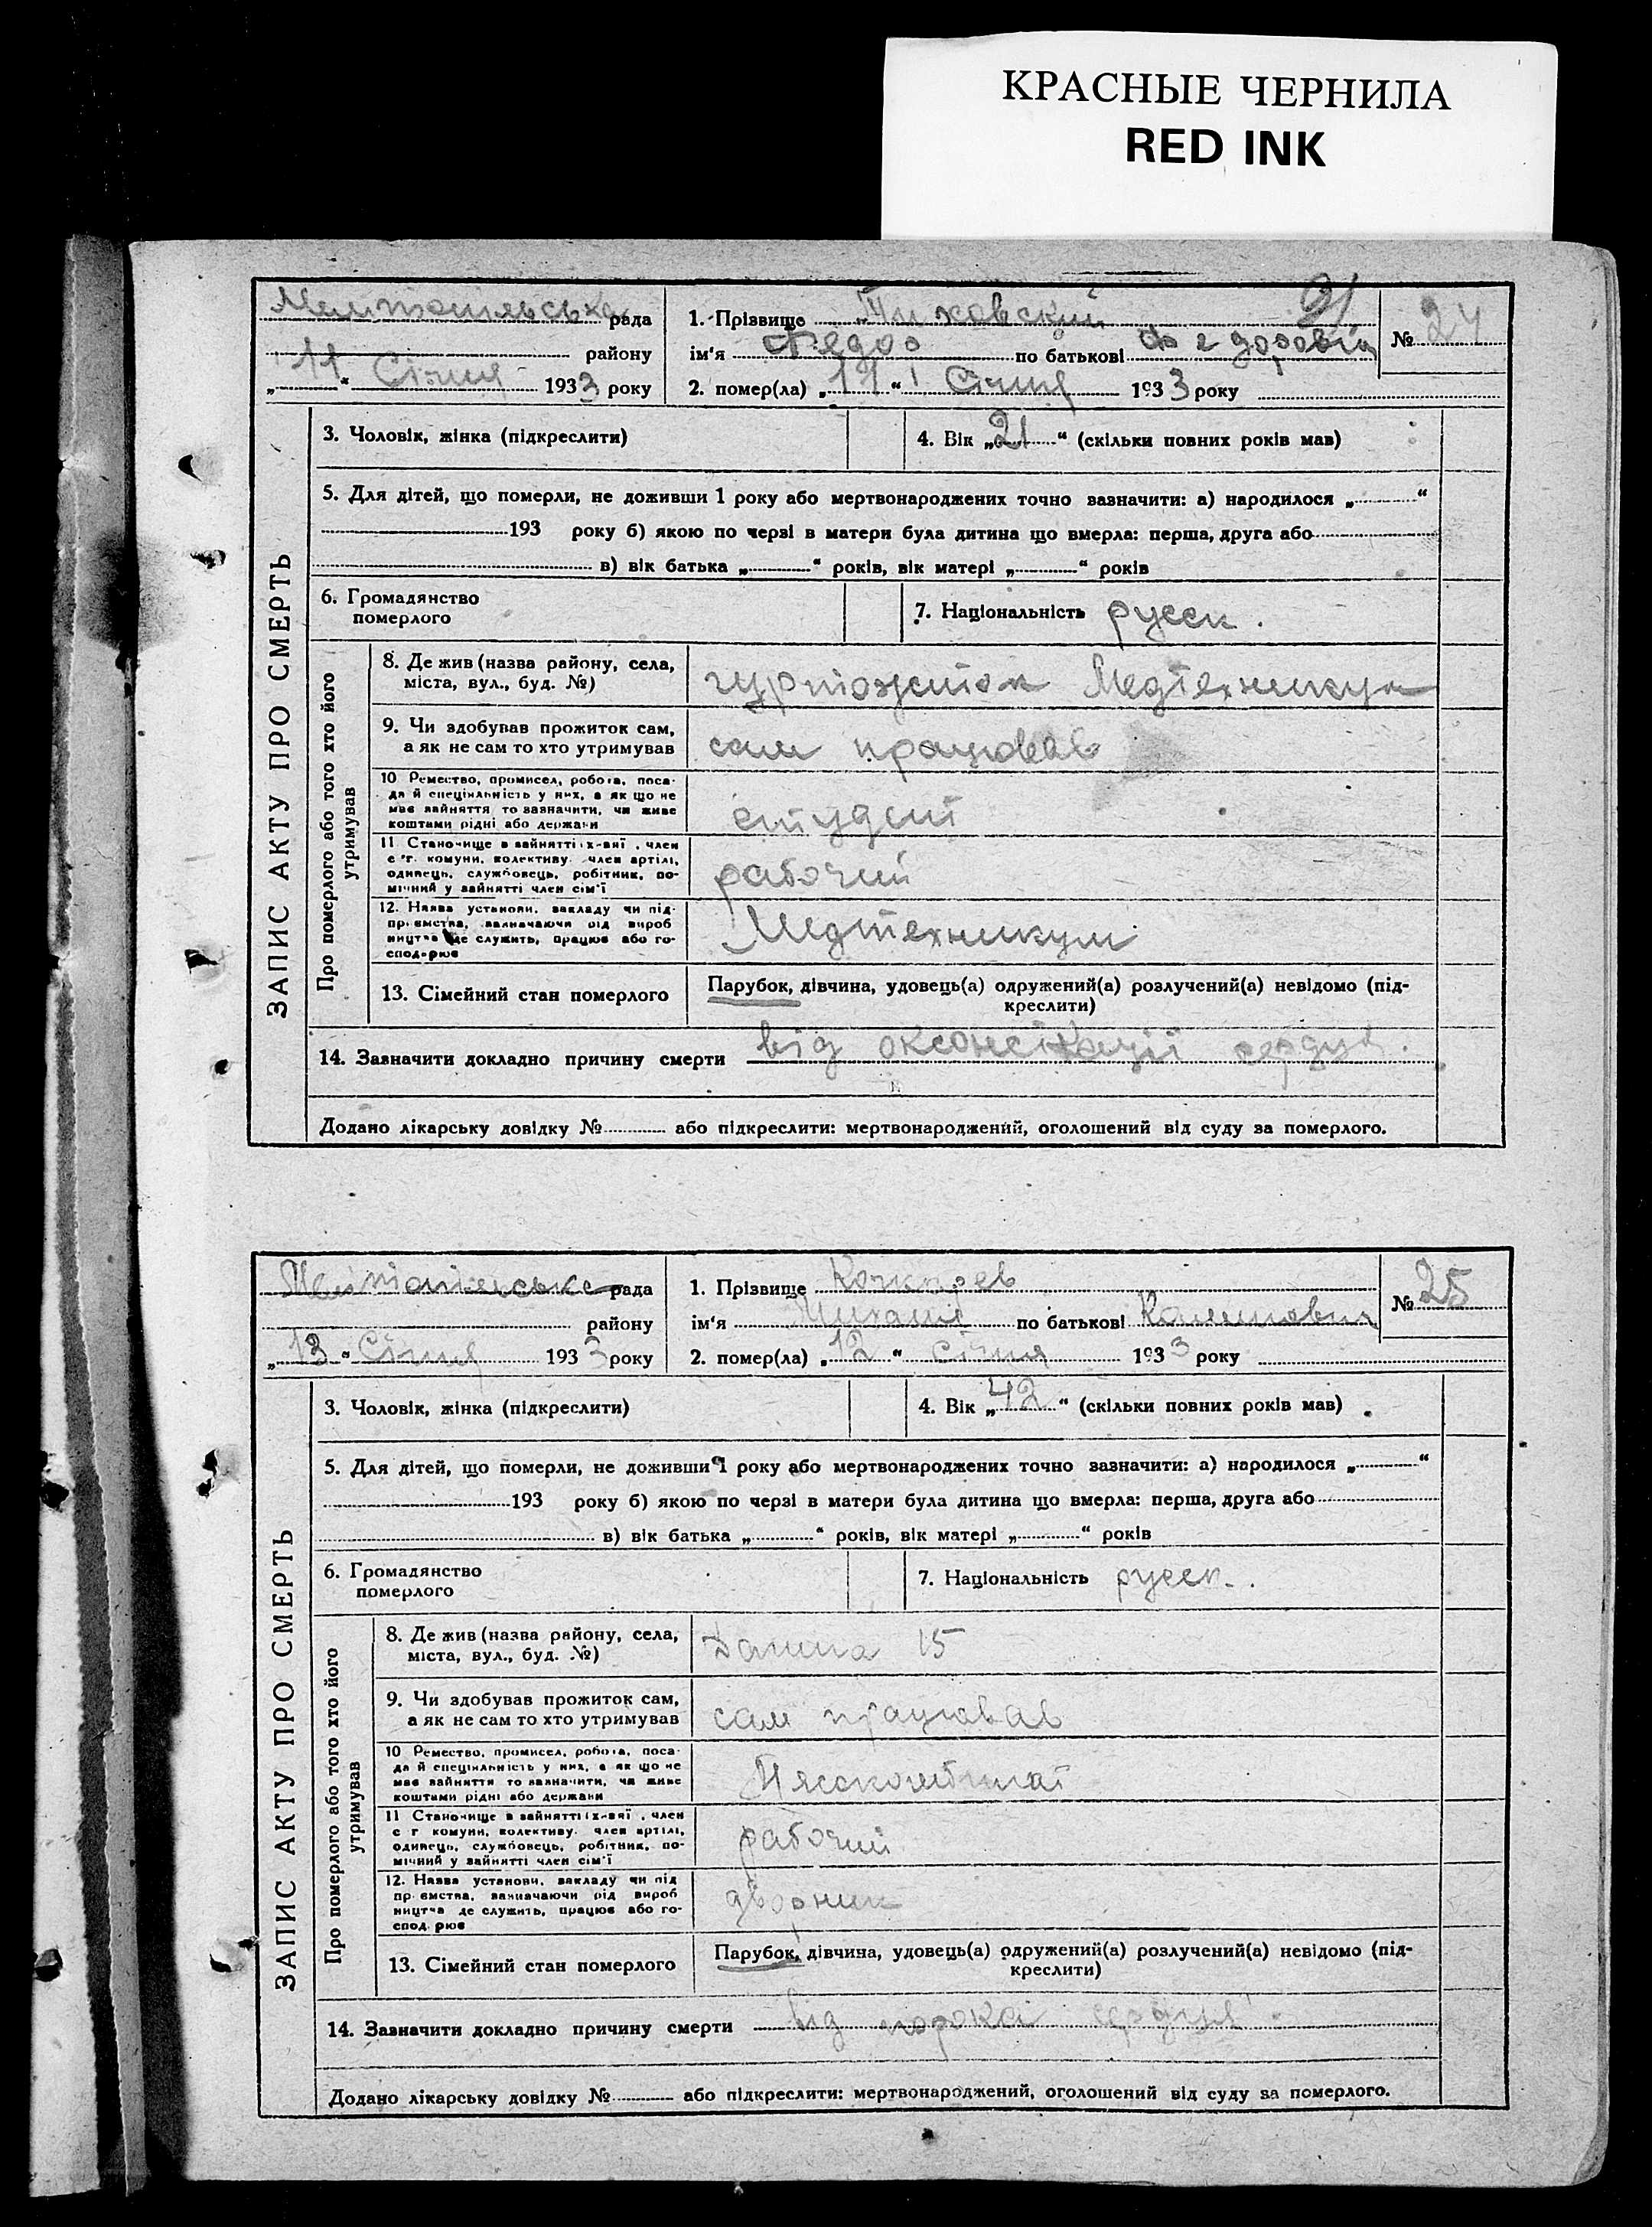 КРАСНЫЕ ЧЕРНИЛА
RED INK
91
Мелитопільська рада
району
„ 11 “ Січня 1933 року
1. Прізвище Тиховский
ім'я Федор по батькові Федорович
2. помер(ла) „ 11 “ Січня 1933 року
№ 24
ЗАПИС АКТУ ПРО СМЕРТЬ
3. Чоловік, жінка (підкреслити)
4. Вік „ 21 “ (скільки повних років мав)
5. Для дітей, що померли, не доживши 1 року або мертвонароджених точно зазначити: а) народилося „ “
193 року б) якою по черзі в матери була дитина що вмерла: перша, друга або
в) вік батька „ “ років, вік матері „ “ років
6. Громадянство
померлого
7. Національність русск.
Про померлого або того хто його
утримував
8. Де жив (назва району, села,
міста, вул., буд. №)
гуртожиток Медтехникум
9. Чи здобував прожиток сам,
а як не сам то хто утримував
сам працював
10 Ремество, промисел, робота, поса-
да й спеціяльність у них, а як що не
має зайняття то зазначити, чи живе
коштами рідні або держави
студент
11 Становище в зайнятті: х-вяї, член
с.-г. комуни, колективу, член артілі,
одинець, службовець, робітник, по-
мічний у зайнятті член сім'ї
рабочий
12. Назва установи, закладу чи під-
приємства, зазначаючи рід вироб
ництва де служить, працює або го-
сподарює
Медтехникум
13. Сімейний стан померлого
Парубок, дівчина, удовець(а) одружений(а) розлучений(а) невідомо (під-
креслити)
14. Зазначити докладно причину смерти від серця.
Додано лікарську довідку № або підкреслити: мертвонароджений, оголошений від суду за померлого.
Мелітопільська рада
району
„ 13 “ Січня 1933 року
1. Прізвище
ім'я Михаил по батькові
2. помер(ла) „ 12 “ січня 1933 року
№ 25
ЗАПИС АКТУ ПРО СМЕРТЬ
3. Чоловік, жінка (підкреслити)
4. Вік „ 42 “ (скільки повних років мав)
5. Для дітей, що померли, не доживши 1 року або мертвонароджених точно зазначити: а) народилося „ “
193 року б) якою по черзі в матери була дитина що вмерла: перша, друга або
в) вік батька „ “ років, вік матері „ “ років
6. Громадянство
померлого
7. Національність русск.
Про померлого або того хто його
утримував
8. Де жив (назва району, села,
міста, вул., буд. №)
15
9. Чи здобував прожиток сам,
а як не сам то хто утримував
сам працював
10 Ремество, промисел, робота, поса-
да й спеціяльність у них, а як що не
має зайняття то зазначити, чи живе
коштами рідні або держави
Мясокомбинат
11 Становище в зайнятті: х-вяї, член
с.-г. комуни, колективу, член артілі,
одинець, службовець, робітник, по-
мічний у зайнятті член сім'ї
рабочий
12. Назва установи, закладу чи під
приємства, зазначаючи рід вироб
ництва де служить, працює або го-
сподарює
дворник
13. Сімейний стан померлого
Парубок, дівчина, удовець(а) одружений(а) розлучений(а) невідомо (під-
креслити)
14. Зазначити докладно причину смерти від порока серця.
Додано лікарську довідку № або підкреслити: мертвонароджений, оголошений від суду за померлого.